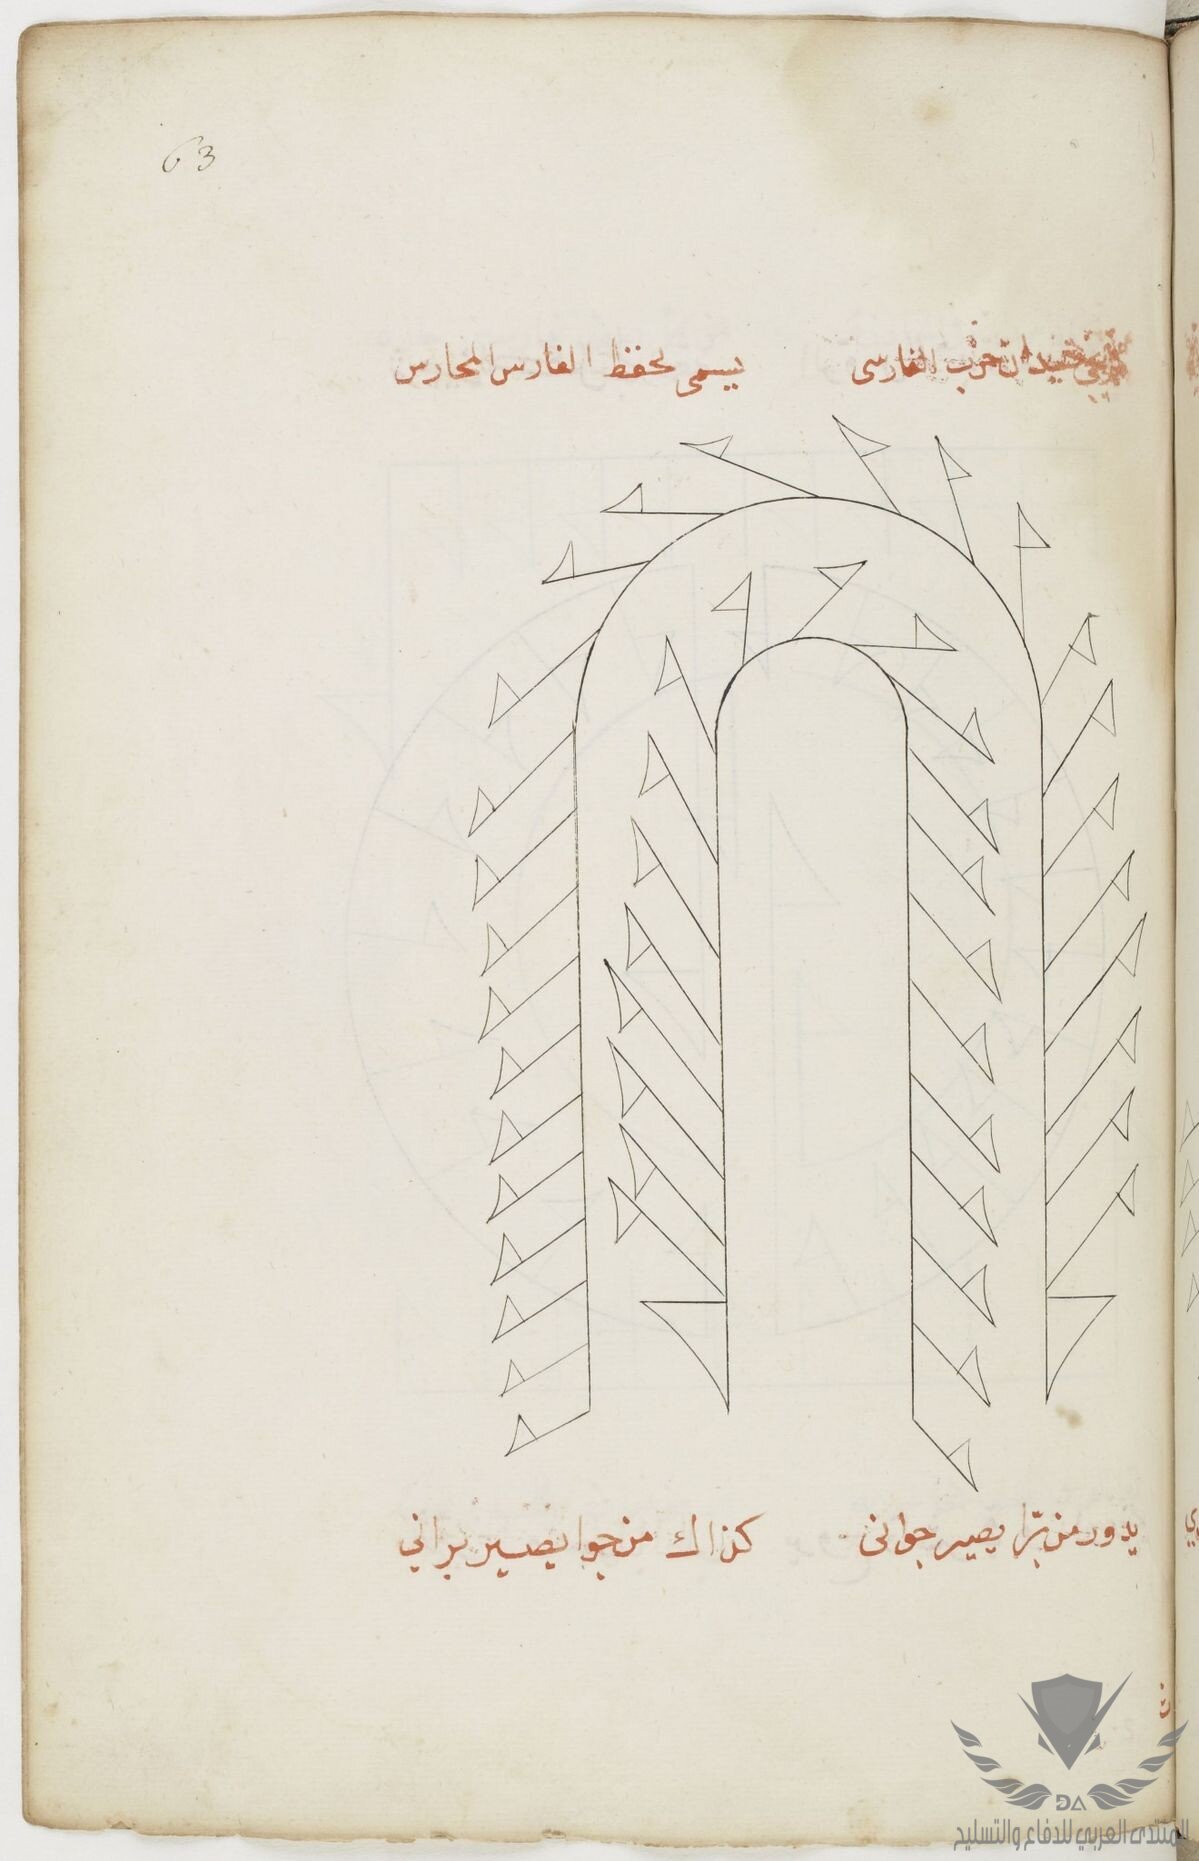 63
ميدان حرب الفارسى يسمى لحفظ الفارس المحارس
يدور من برّا يصير جوانى كذاك من جوا يصير برانى
DA
المنتدى العربي للدفاع والتسليح